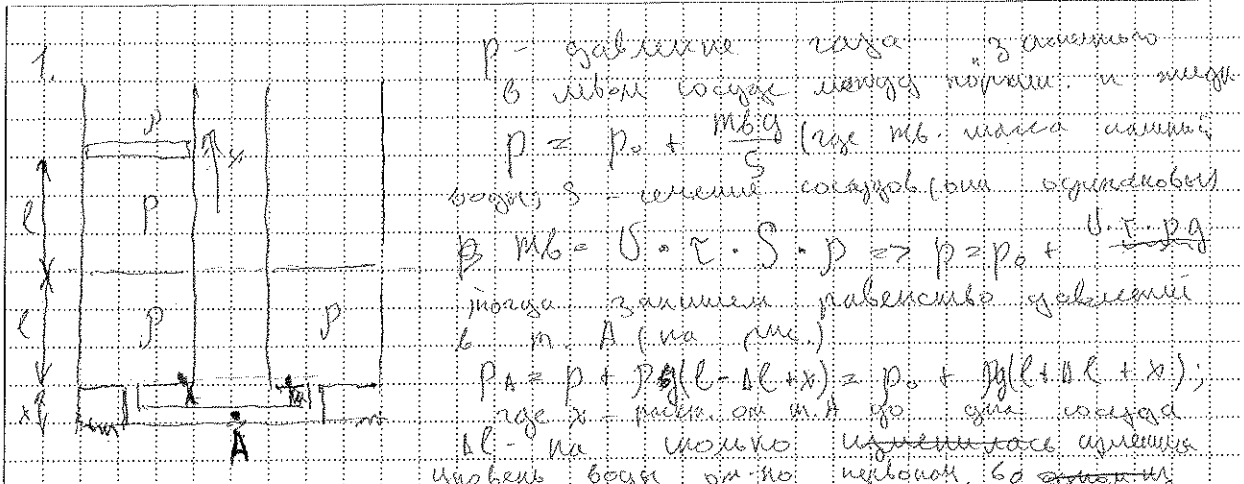 1.
p - давление газа
в левом сосуде между поршн. и жидк
p = p₀ + mв.g/S (где mв. масса
воды; S - сечение сосудов (они одинаковы)
mв = υ·τ·S·ρ => p = p₀ + υ·τ·ρg
тогда запишем равенство давлений
в т. A (на рис.)
p_A = p + ρg(l-Δl+x) = p₀ + ρg(l+Δl+x);
где x - расст. от т.A до дна сосуда
Δl - на сколько изменилась
уровень воды от-но первонач.
p
x
l
p
l
ρ
ρ
x
A